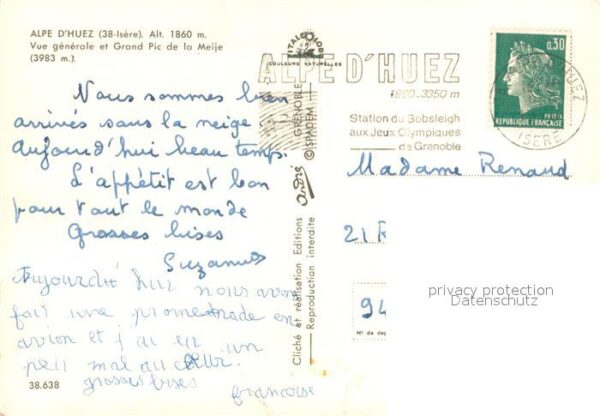 ALPE D'HUEZ (38-Isère). Alt. 1860 m.
Vue générale et Grand Pic de la Meije
(3983 m.)
Nous sommes bien
arrivés sous la neige
aujourd'hui beau temps.
L'appétit est bon
pour tout le monde
Grosses bises
Suzanne
Aujourd'hui nous avons
fait une promenade en
avion et j'ai eu un
peu mal au cœur.
grosses bises
francoise
38.638
ITALCOLOR
COULEURS NATURELLES
GRENOBLE
© SPADEM
André
Cliché et réalisation Editions
Reproduction interdite
ALPE D'HUEZ
1860-3350 m
Station du Bobsleigh
aux Jeux Olympiques
de Grenoble
0,30
POSTES
REPUBLIQUE FRANÇAISE
HUEZ
ISERE
Madame Renaud
21 R
94
N° de dép
privacy protection
Datenschutz